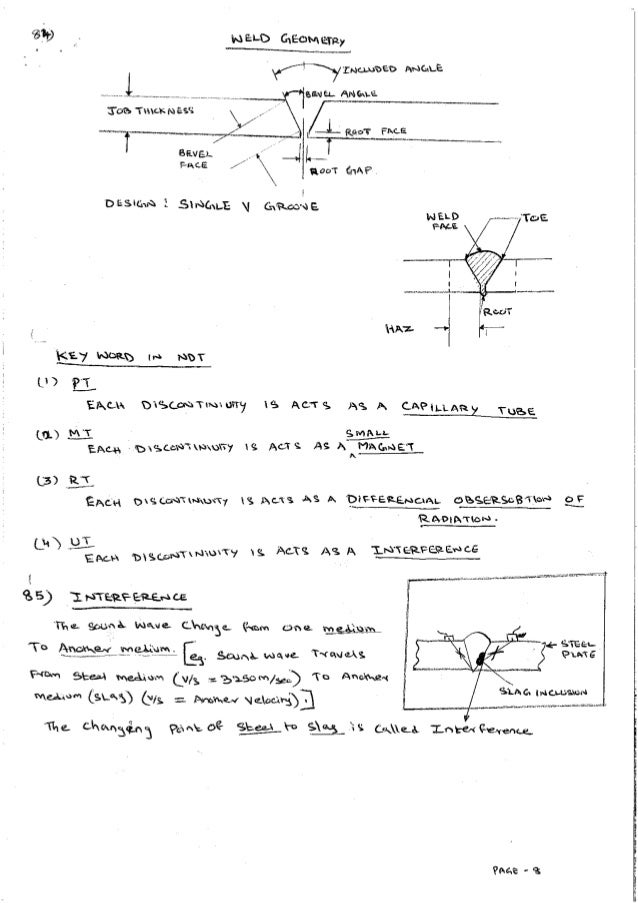 84)
WELD GEOMETRY
INCLUDED ANGLE
BEVEL ANGLE
JOB THICKNESS
ROOT FACE
BEVEL
FACE
ROOT GAP
DESIGN : SINGLE V GROOVE
WELD
FACE
TOE
ROOT
HAZ
KEY WORD IN NDT
(1) PT
EACH DISCONTINIUITY IS ACTS AS A CAPILLARY TUBE
(2) MT
SMALL
EACH DISCONTINIUITY IS ACTS AS A ^ MAGNET
(3) RT
EACH DISCONTINIUITY IS ACTS AS A DIFFERENCIAL OBSERSOBTION OF
RADIATION.
(4) UT
EACH DISCONTINIUITY IS ACTS AS A INTERFERENCE
85) INTERFERENCE
The sound wave change from one medium
To Another medium. [eg. Sound wave Travels
From Steel medium (V/s = 3250m/sec) To Another
medium (SLAG) (V/s = Another Velocity).]
The changing Point of Steel to Slag is called Interference
STEEL
PLATE
SLAG INCLUSION
PAGE - 8